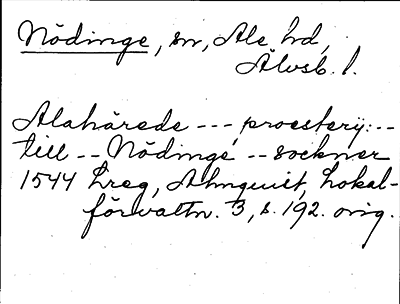 Nödinge, sn, Ale hd,
Älvsb. l.
Alahärede --- proestery: --
till -- Nödinge -- sockner
1544 Lreg, Almquist, Lokal-
förvaltn. 3, s. 192. orig.